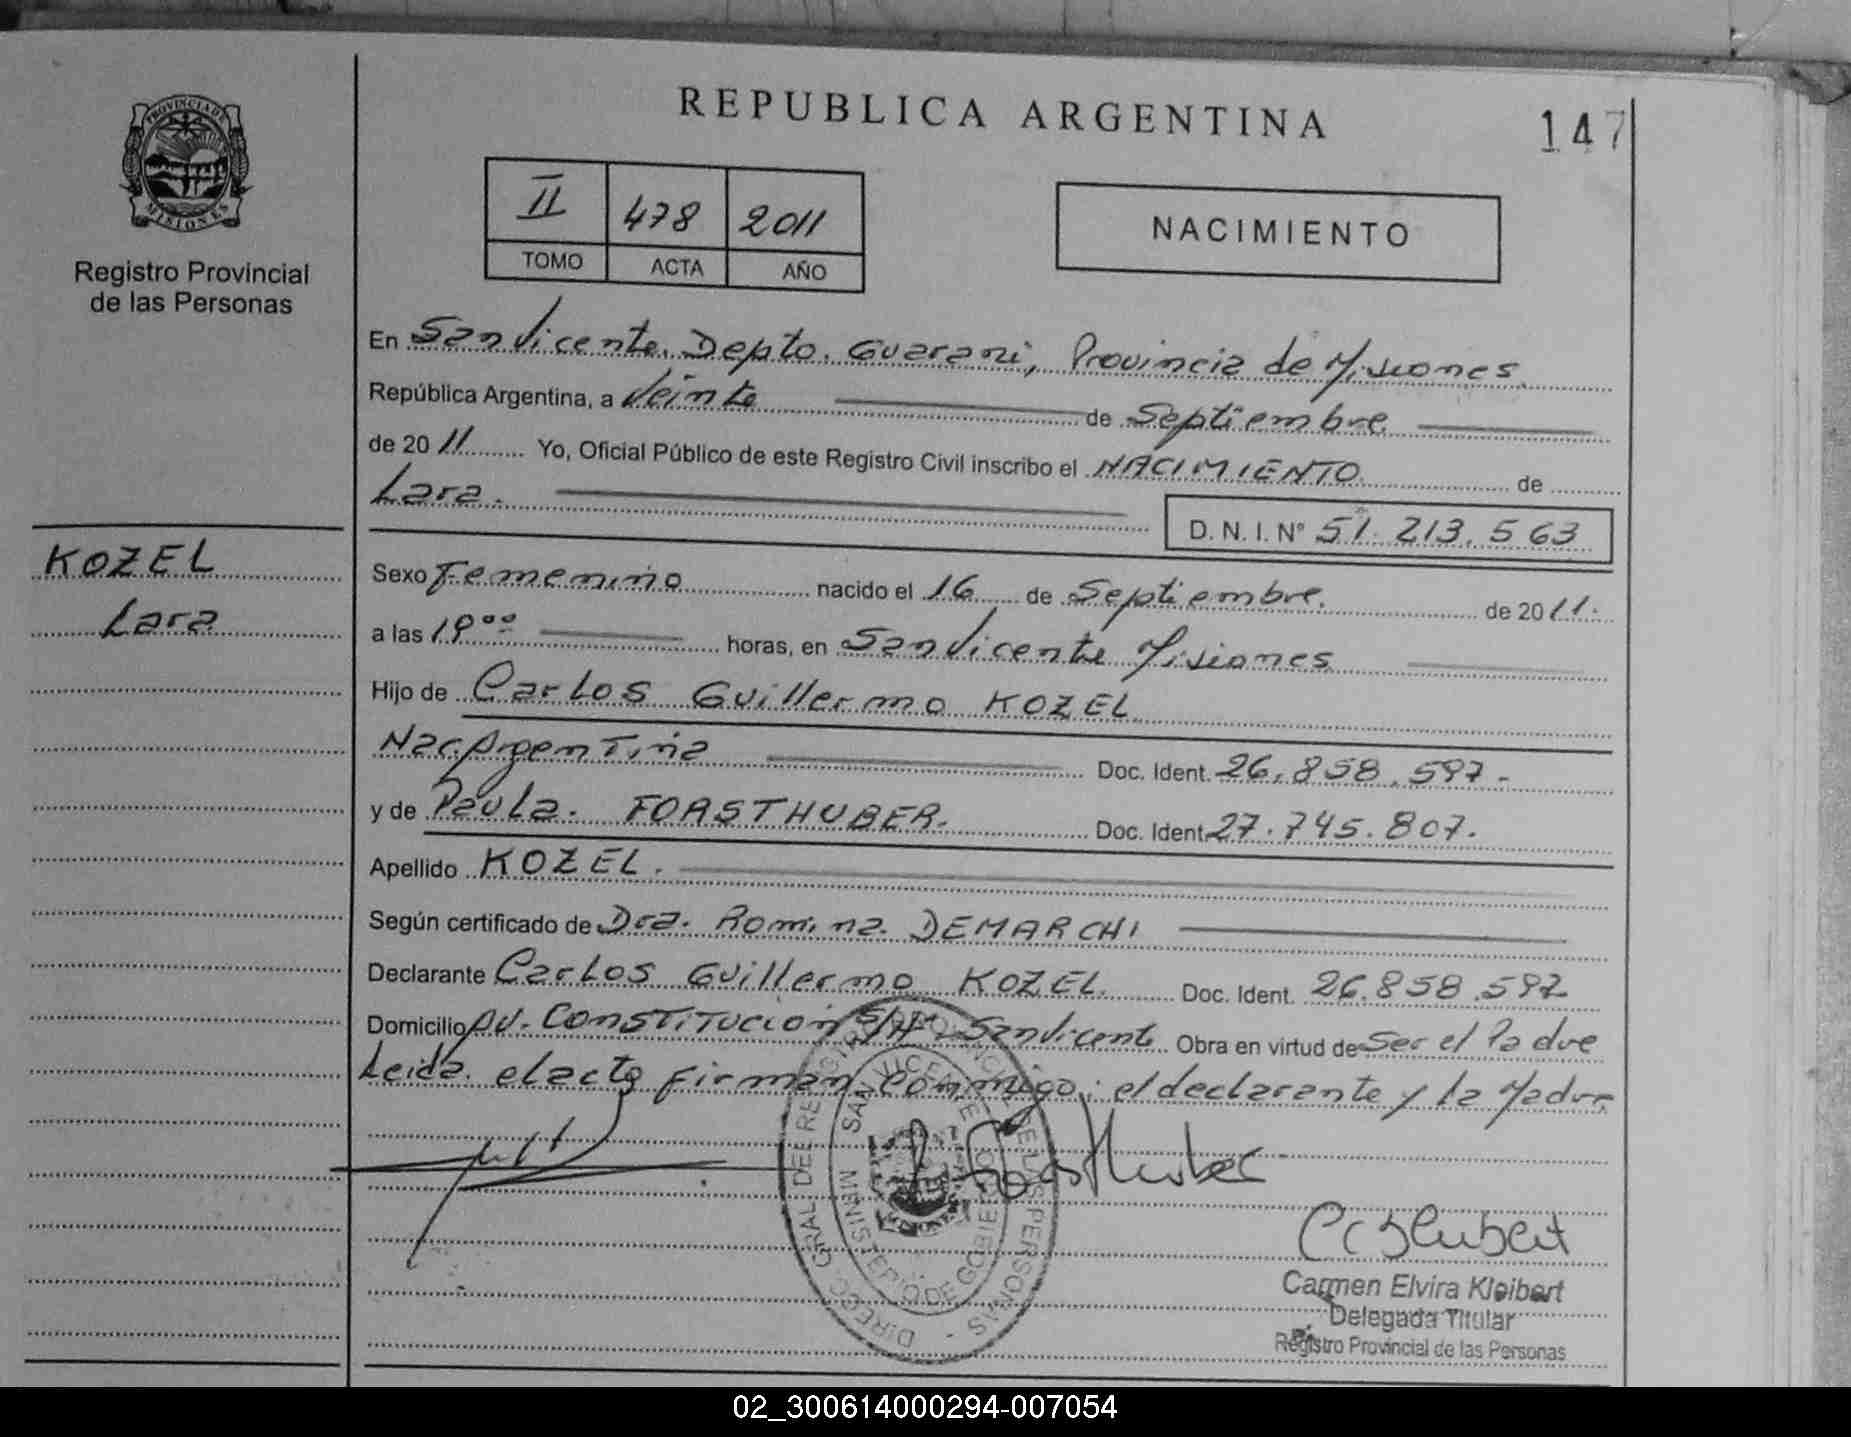 REPUBLICA ARGENTINA
147
PROVINCIA DE MISIONES
Registro Provincial
de las Personas
II 478 2011
TOMO ACTA AÑO
NACIMIENTO
En San Vicente, Depto. Guarani, Provincia de Misiones
República Argentina, a Veinte de Septiembre
de 2011 Yo, Oficial Público de este Registro Civil inscribo el NACIMIENTO de
Lara.
D. N. I. Nº 51.213.563
KOZEL
Lara
Sexo Femenino nacido el 16 de Septiembre. de 2011.
a las horas, en San Vicente Misiones
Hijo de Carlos Guillermo KOZEL
Nac. Argentina Doc. Ident. 26.858.597.
y de Paula. FORSTHUBER. Doc. Ident. 27.745.807.
Apellido KOZEL.
Según certificado de Dra. Romina DEMARCHI
Declarante Carlos Guillermo KOZEL Doc. Ident. 26.858.597
Domicilio AV. CONSTITUCION S/Nº San Vicente Obra en virtud de ser el Padre
Leida el acta firman conmigo: el declarante y la Madre
DIRECC. GRAL. DEL REGISTRO PROVINCIAL DE LAS PERSONAS -
SAN VICENTE
MINISTERIO DE GOBIERNO
Forsthuber
Carmen Elvira Kleibert
Delegada Titular
Registro Provincial de las Personas
02_300614000294-007054